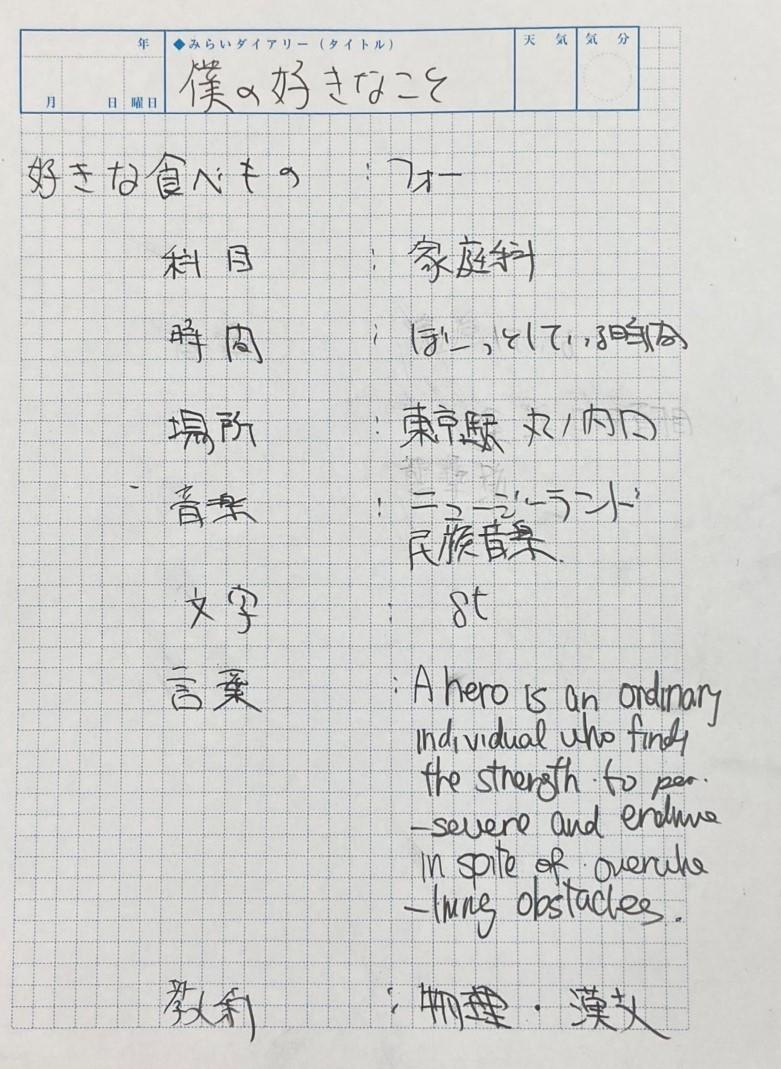 年
◆みらいダイアリー(タイトル)
天 気
気 分
月 日 曜日
僕の好きなこと
好きな食べもの : フォー
科目 : 家庭科
時間 : ぼーっとしている時間
場所 : 東京駅 丸ノ内口
音楽 : ニュージーランド
民族音楽
文字 : st
言葉 : A hero is an ordinary
individual who finds
the strength to per.
-severe and endure
in spite of overwhe
-lming obstacles.
教科 : 物理・漢文